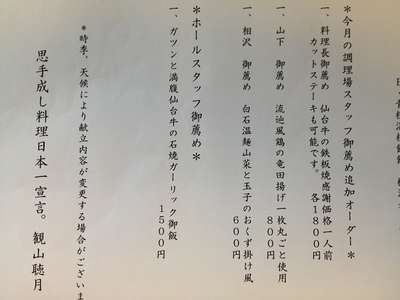 ＊今月の調理場スタッフ御薦め追加オーダー＊
一、料理長御薦め　仙台牛の鉄板焼感謝価格一人前
カットステーキも可能です。　各１８００円
一、山下　御薦め　流池風鶏の竜田揚げ一枚丸ごと使用
８００円
一、相沢　御薦め　白石温麺山菜と玉子のおくず掛け風
６００円
＊ホールスタッフ御薦め＊
一、ガツンと満腹仙台牛の石焼ガーリック御飯
１５００円
＊時季、天候により献立内容が変更する場合がございま
思手成し料理日本一宣言。　観山聴月